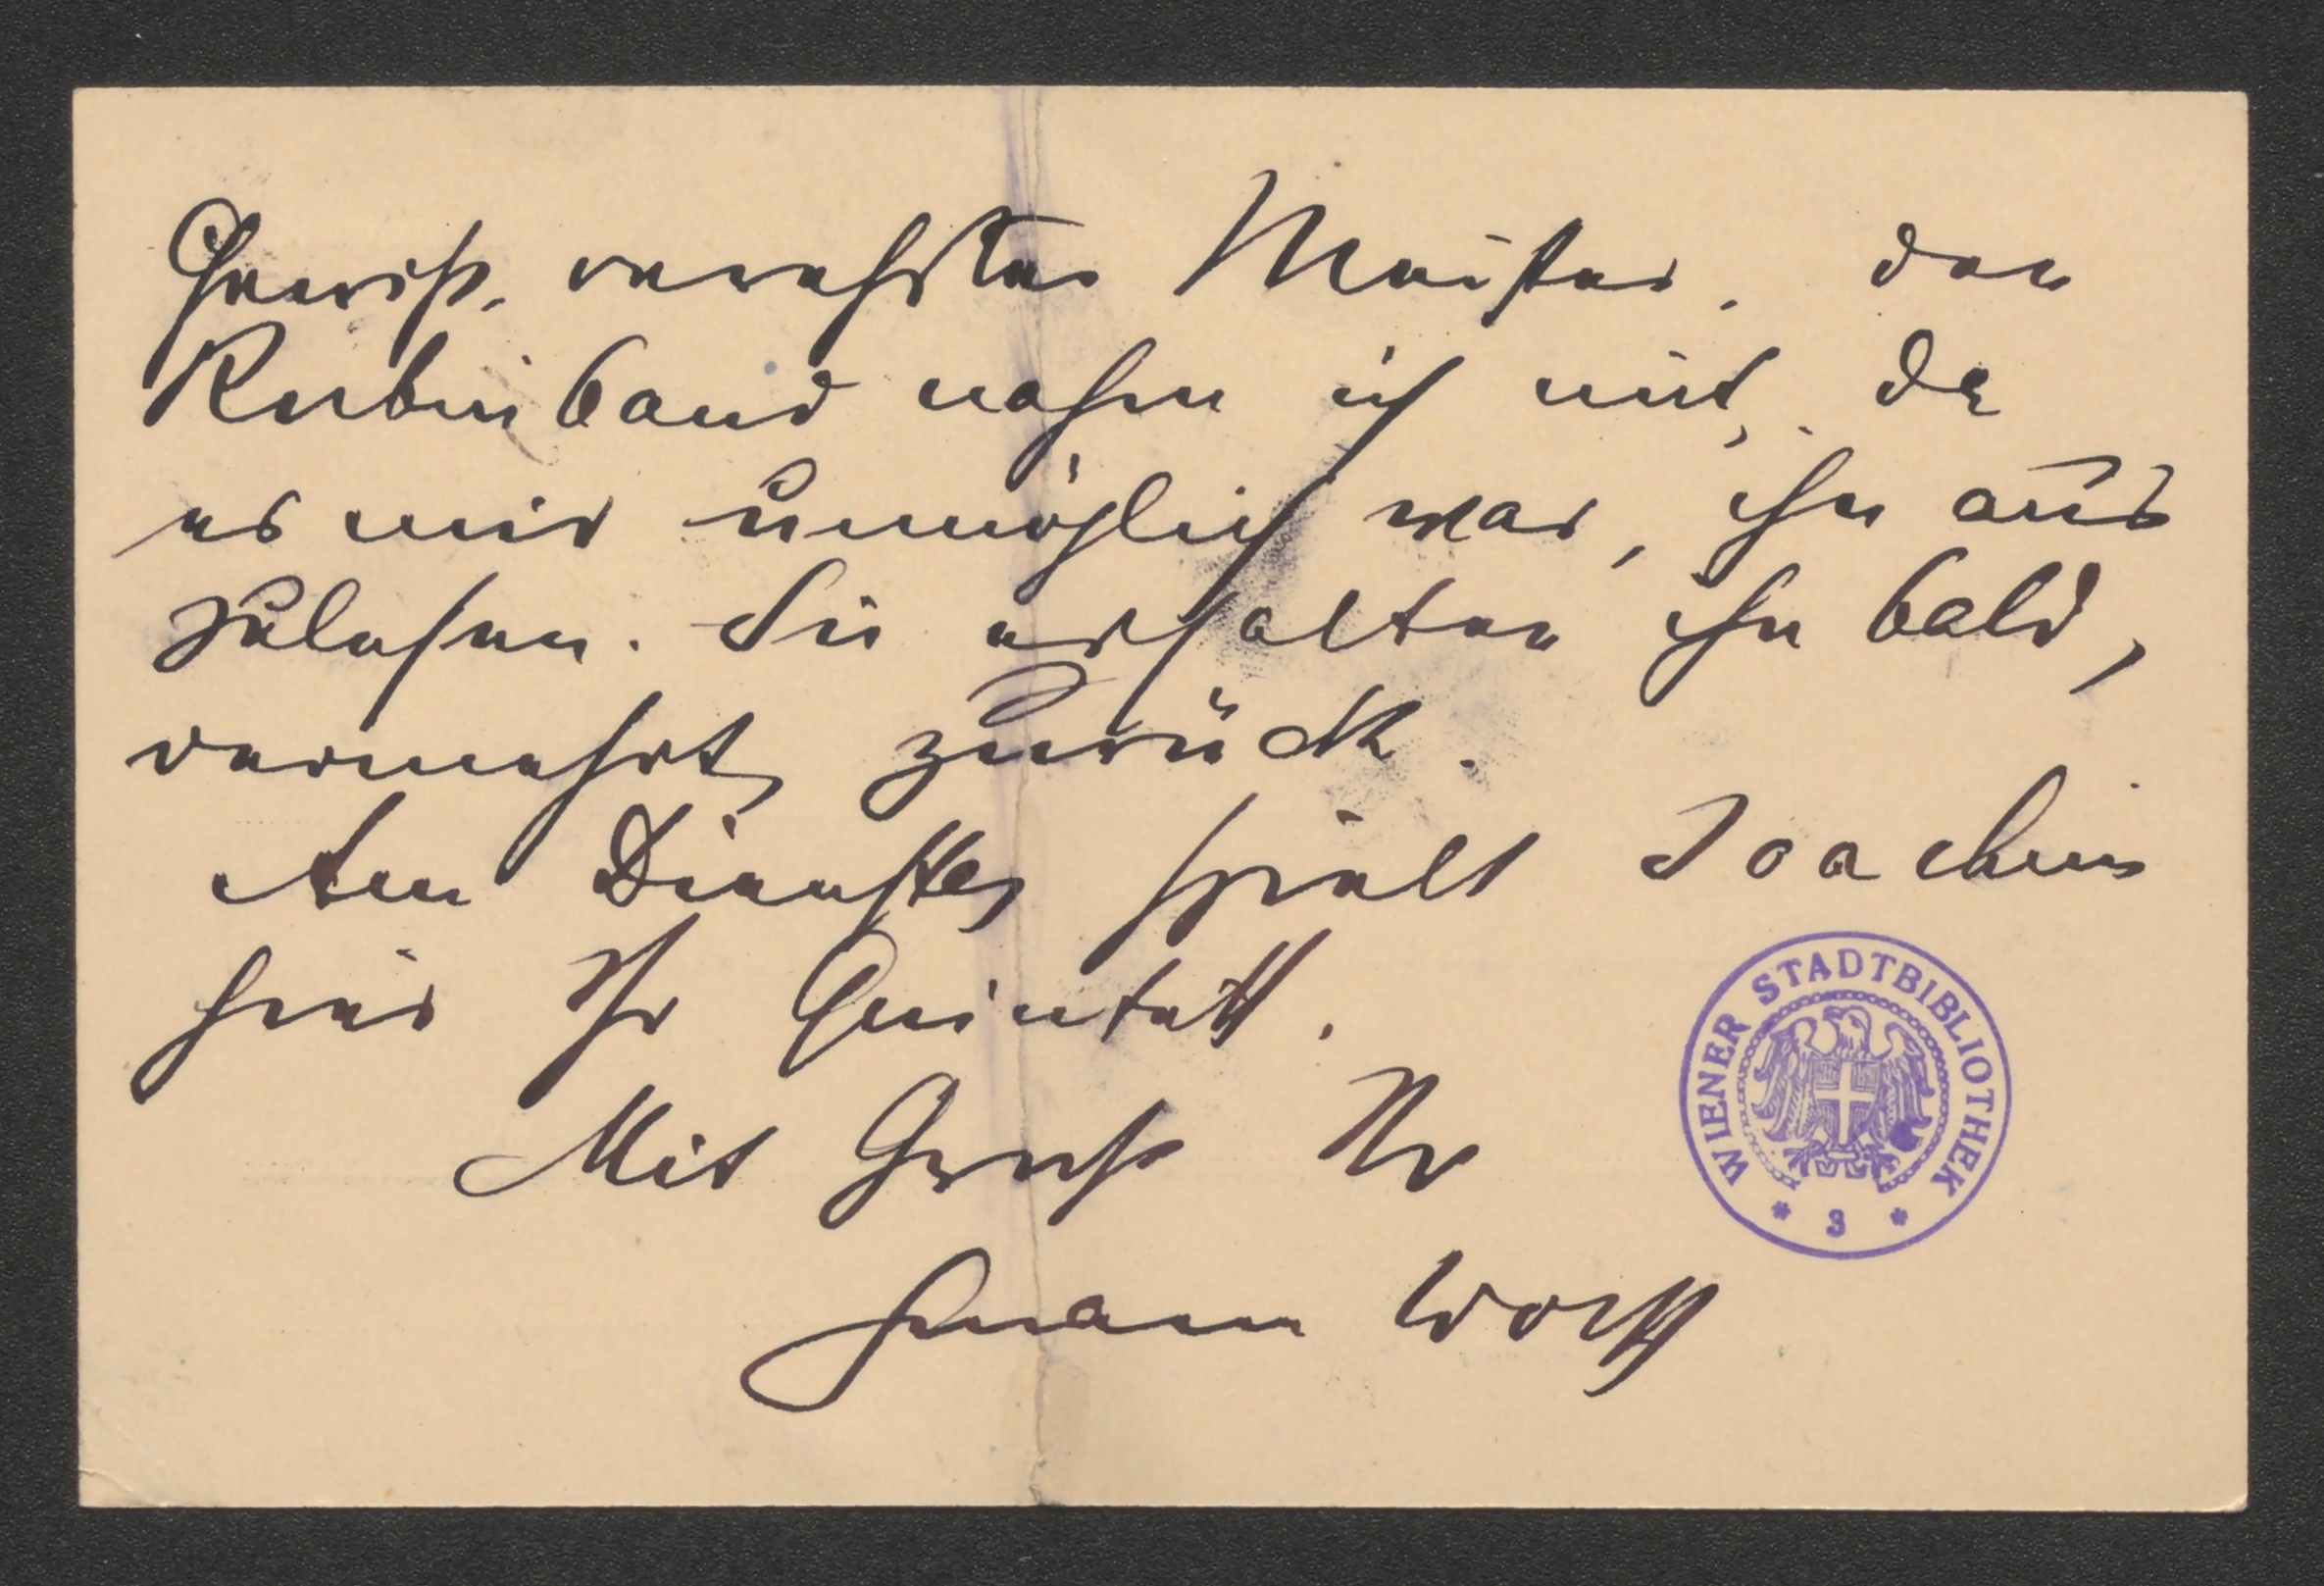 Gewiss, verehrter Meister, den
Rubinband nahm ich mit, da
es mir unmöglich war, ihn aus
zulesen. Sie erhalten ihn bald,
vermehrt, zurück.
Am Dienstag spielt Joachim
hier Ihr Quintett.
Mit Gruss Ihr
Hermann Wolff
WIENER STADTBIBLIOTHEK
* 3 *